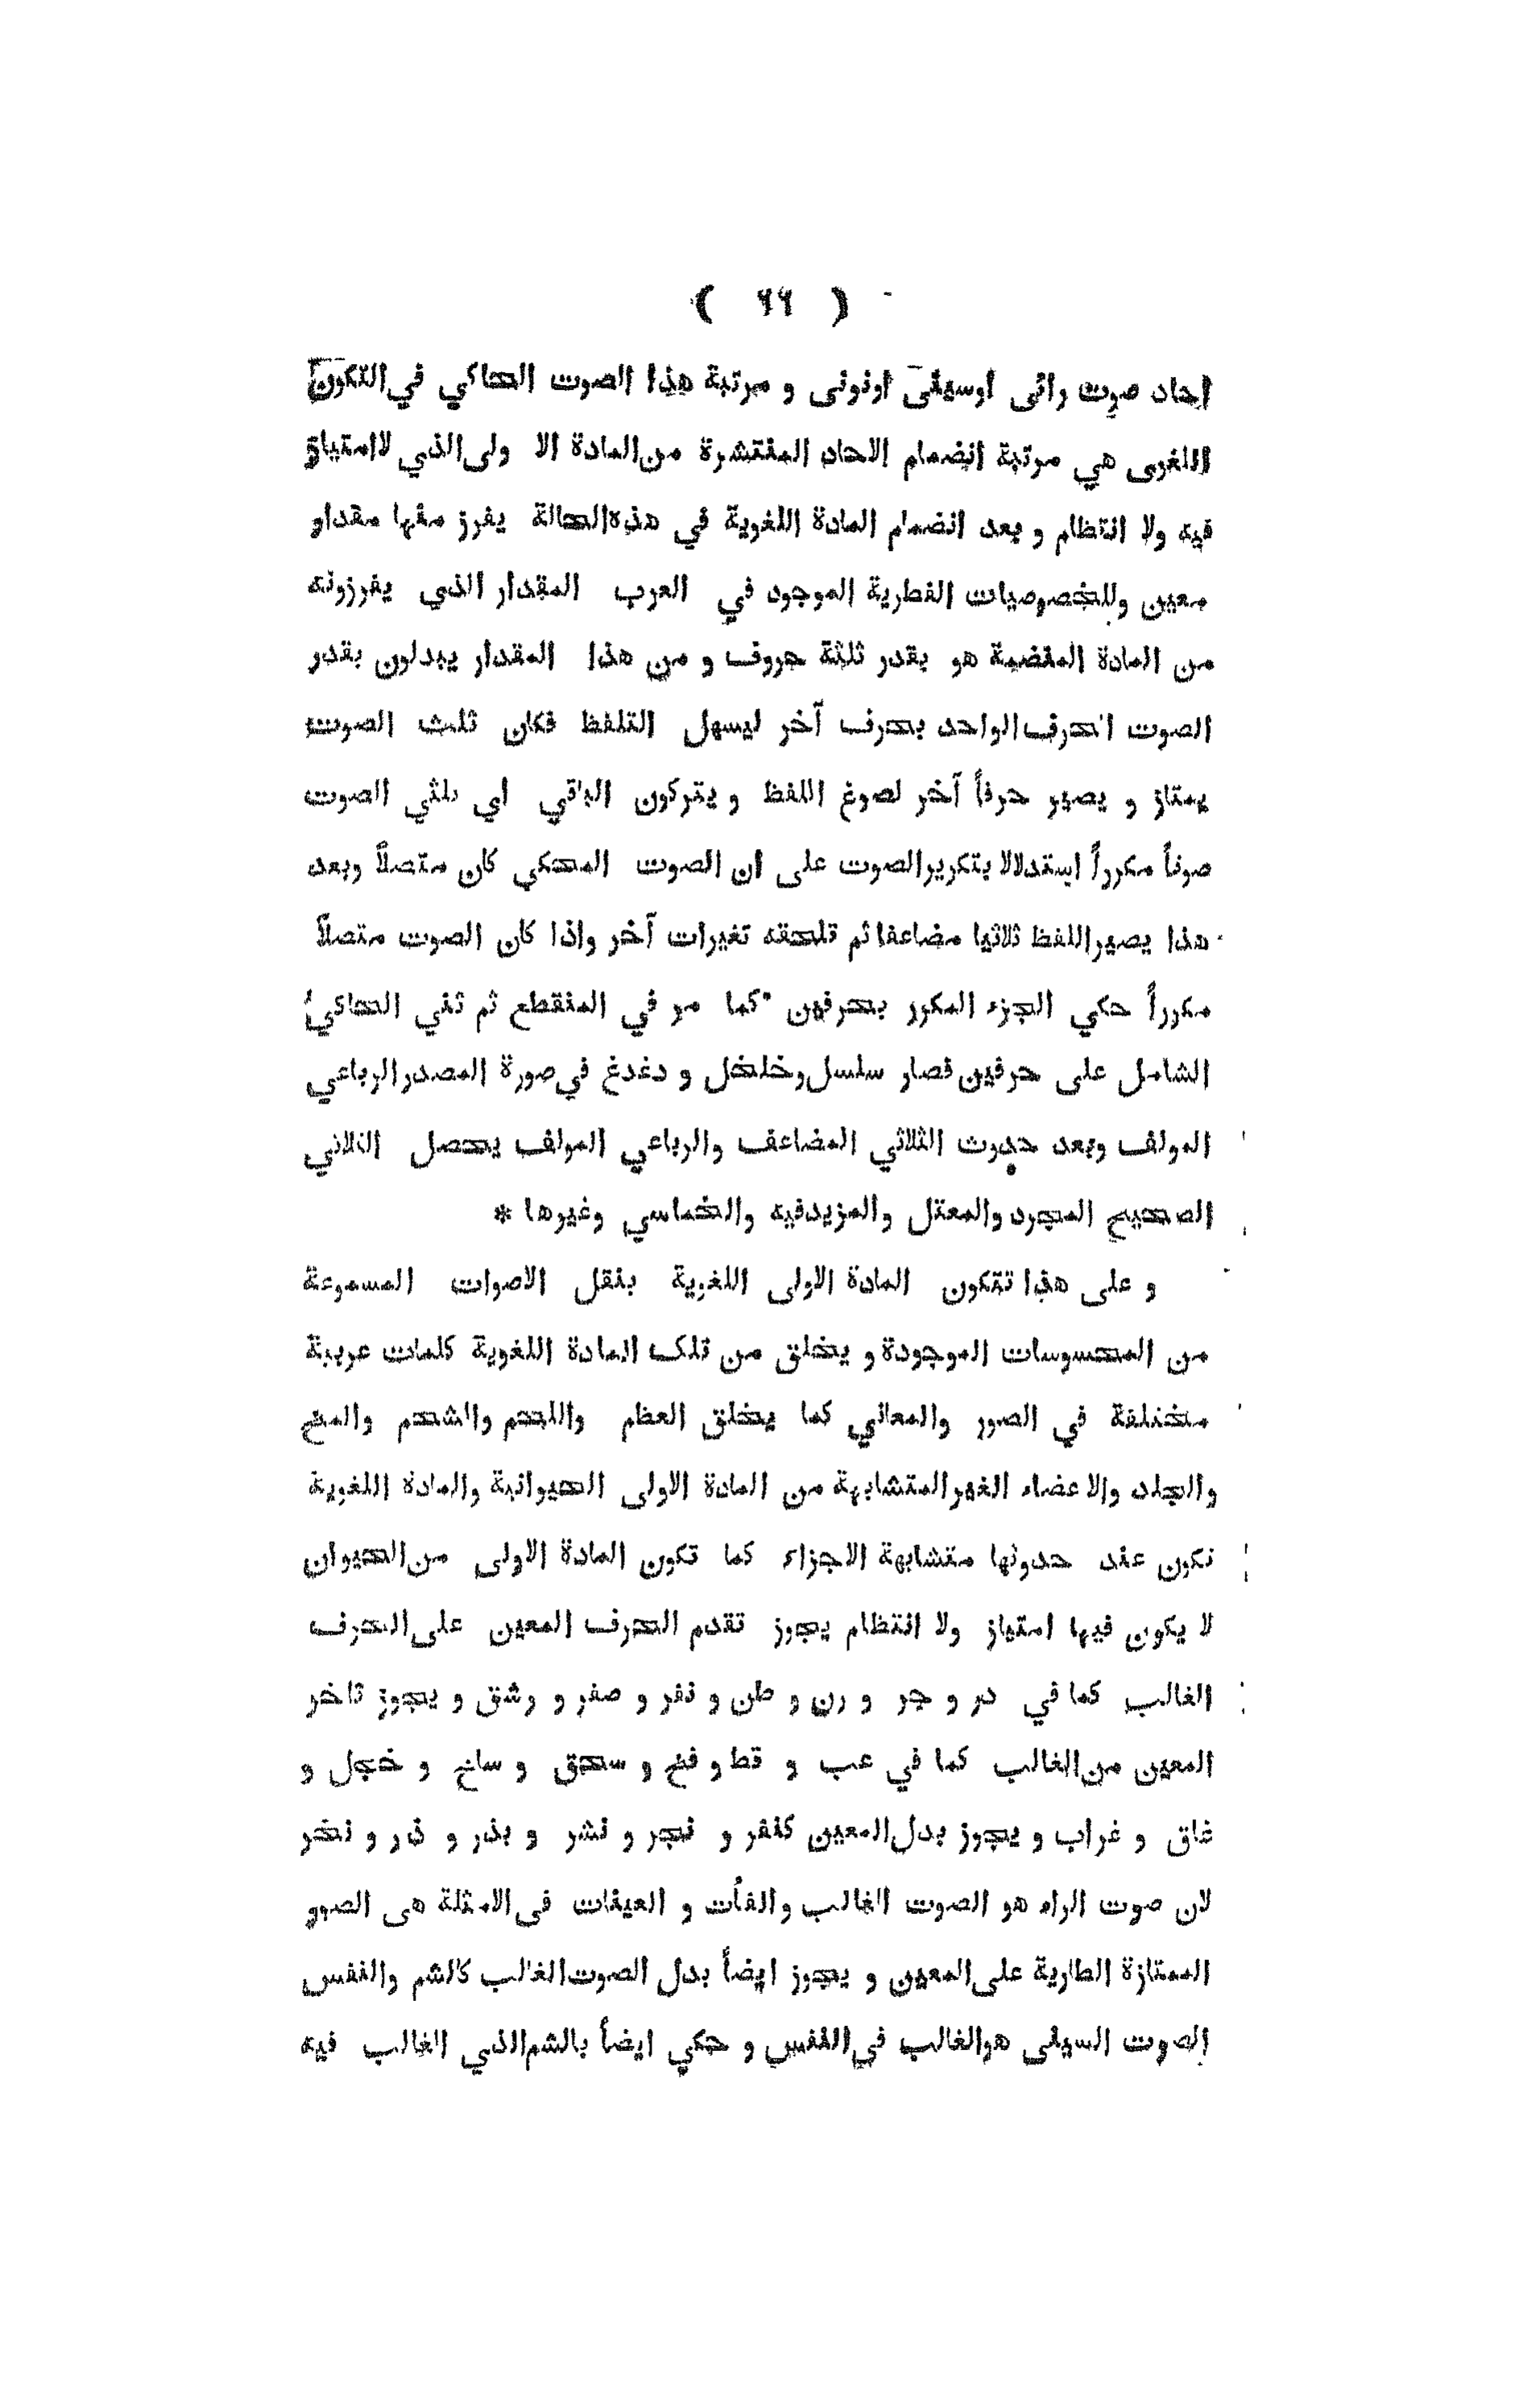 ( ٦٦ )
احاد صوت رائى اوسينى اونونى و مرتبة هذا الصوت الحاكي في التكون
اللغوى هي مرتبة انضمام الاحاد المنتشرة من المادة الا ولى الذي لاامتياز
فيه ولا انتظام و بعد انضمام المادة اللغوية في هذه الحالة يفرز منها مقدار
معين وللخصوصيات الفطرية الموجود في العرب المقدار الذي يفرزونه
من المادة المنضمة هو بقدر ثلثة حروف و من هذا المقدار يبدلون بقدر
الصوت الحرف الواحد بحرف آخر ليسهل التلفظ فكان ثلث الصوت
يمتاز و يصير حرفاً آخر لصوغ اللفظ و يتركون الباقي اي ثلثي الصوت
صوتاً مكرراً استدلالا بتكرير الصوت على ان الصوت المحكي كان متصلاً وبعد
هذا يصير اللفظ ثلاثيا مضاعفا ثم تلحقه تغيرات آخر واذا كان الصوت متصلاً
مكرراً حكي الجزء المكرر بحرفين كما مر في المنقطع ثم ثني الحاكي
الشامل على حرفين فصار سلسل وخلخل و دغدغ في صورة المصدر الرباعي
المولف وبعد حدوث الثلاثي المضاعف والرباعي المولف يحصل الثلاثي
الصحيح المجرد والمعتل والمزيدفيه والخماسي وغيرها *
و على هذا تتكون المادة الاولى اللغوية بنقل الاصوات المسموعة
من المحسوسات الموجودة و يخلق من تلك المادة اللغوية كلمات عربية
مختلفة في الصور والمعاني كما يخلق العظم واللحم والشحم والمخ
والجلد والاعضاء الغير المتشابهة من المادة الاولى الحيوانية والمادة اللغوية
تكون عند حدوثها متشابهة الاجزاء كما تكون المادة الاولى من الحيوان
لا يكون فيها امتياز ولا انتظام يجوز تقدم الحرف المعين على الحرف
الغالب كما في در و جر و رن و طن و نفر و صفر و رشق و يجوز تاخر
المعين من الغالب كما في عب و قط و فخ و سحق و سلخ و خجل و
غاق و غراب و يجوز بدل المعين كنفر و نجر و نشر و بذر و ذر و نخر
لان صوت الراء هو الصوت الغالب والفأت و العينات في الامثلة هى الصور
الممتازة الطارية على المعين و يجوز ايضاً بدل الصوت الغالب كالشم والنفس
الصوت السينى هو الغالب في النفس و حكي ايضاً بالشم الذي الغالب فيه